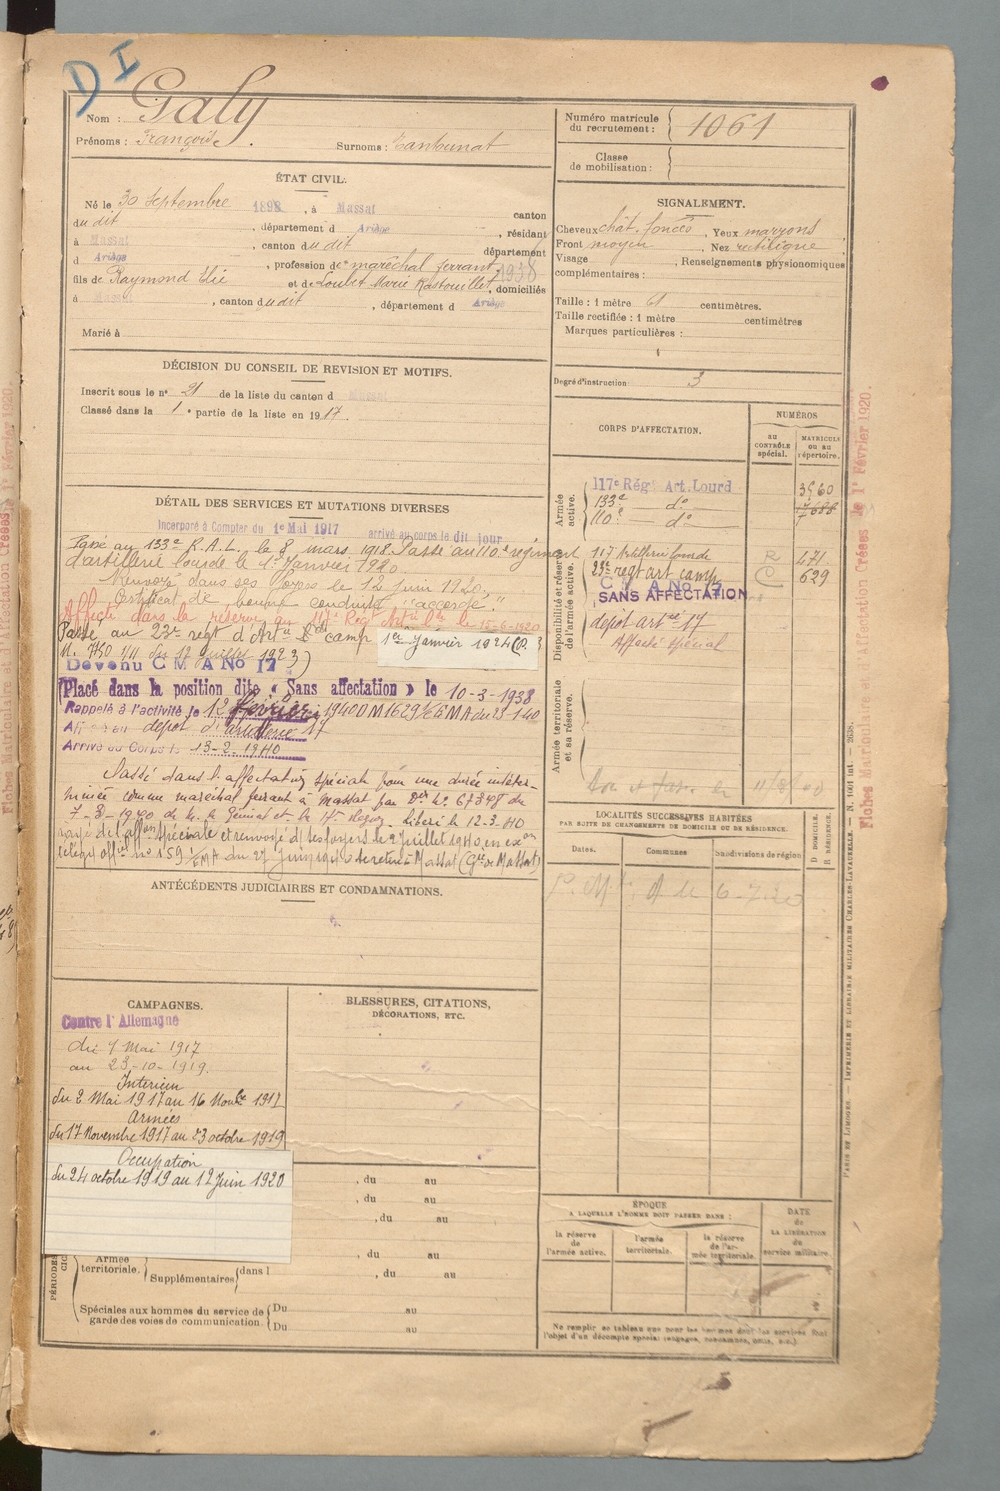 D I
Nom : Galy
Prénoms : François Surnoms :
Numéro matricule du recrutement : 1061
Classe de mobilisation :
ÉTAT CIVIL.
Né le 30 Septembre 1898, à Massat canton
du dit, département d Ariège, résidant
à Massat, canton du dit département
d Ariège, profession de maréchal ferrant 1938
fils de Raymond Elie et de Loubet Marie, domiciliés
à Massat, canton du dit, département d Ariège
Marié à
SIGNALEMENT.
Cheveux chât. foncés, Yeux marrons
Front moyen, Nez rectiligne
Visage, Renseignements physionomiques
complémentaires :
Taille : 1 mètre 61 centimètres.
Taille rectifiée : 1 mètre centimètres
Marques particulières :
DÉCISION DU CONSEIL DE REVISION ET MOTIFS.
Inscrit sous le n° 21 de la liste du canton d Massat
Classé dans la 1e partie de la liste en 1917.
Degré d'instruction : 3
CORPS D'AFFECTATION.
NUMÉROS
au CONTRÔLE spécial.
MATRICULE ou au répertoire.
Armée active.
117e Rég Art. Lourd 3560
133e do
110e do
Disponibilité et réserve de l'armée active.
117 Artillerie lourde 471
23e regt art camp 629
C M A No 17
SANS AFFECTATION
dépôt art ie 17
Affecté spécial
Armée territoriale et sa réserve.
DÉTAIL DES SERVICES ET MUTATIONS DIVERSES
Incorporé à Compter du 1e Mai 1917 arrivé au corps le dit jour
Passé au 133e R.A.L. le 8 mars 1918. Passé au 110e régiment
d'artillerie lourde le 1er Janvier 1920
Renvoyé dans ses foyers le 12 Juin 1920.
Certificat de bonne conduite "accordé."
Affecté dans la réserve au 117e Régt Art ie Lde le 15-6-1920
Passé au 23e regt d'Art ie camp 1er Janvier 1924 (D.
M. 7750 1/11 du 17 juillet 1923)
Devenu C M A No 17
Placé dans la position dite « Sans affectation » le 10-3-1938
Rappelé à l'activité le 12 février 1940 DM 1629 EMA du 23 1 40
Affecté au dépôt d'artillerie 17
Arrivé au Corps le 13-2-1940
Passé dans l'affectation spéciale pour une durée indéter-
minée comme maréchal ferrant à Massat par Don No 67348 du
7-3-1940 de M. le Général Ct la 17e Région. Libéré le 12-3-40
rayé de l'affon spéciale et renvoyé dans ses foyers le 2 Juillet 1940 en exon
n° 159 1/EMA du 27 juin 1940 se retire à Massat
ANTÉCÉDENTS JUDICIAIRES ET CONDAMNATIONS.
LOCALITÉS SUCCESSIVES HABITÉES
PAR SUITE DE CHANGEMENTS DE DOMICILE OU DE RÉSIDENCE.
Dates. Communes Subdivisions de région D DOMICILE. R RÉSIDENCE.
CAMPAGNES.
Contre l'Allemagne
du 1 Mai 1917
au 23-10-1919.
Intérieur
du 2 Mai 1917 au 16 Novbe 1917
Armées
du 17 Novembre 1917 au 23 octobre 1919
Occupation
du 24 octobre 1919 au 12 Juin 1920
BLESSURES, CITATIONS,
DÉCORATIONS, ETC.
, du au
, du au
, du au
, du au
, du au
Armée territoriale.
Supplémentaires dans l
Spéciales aux hommes du service de garde des voies de communication.
Du au
Du au
ÉPOQUE
A LAQUELLE L'HOMME DOIT PASSER DANS :
la réserve de l'armée active.
l'armée territoriale.
la réserve de l'armée territoriale.
DATE de LA LIBÉRATION du service militaire.
Ne remplir ce tableau que pour les hommes dont les services font
l'objet d'un décompte spécial
Fiches Matriculaire et d'Affectation Créées le 1er Février 1920.
PARIS ET LIMOGES. — IMPRIMERIE ET LIBRAIRIE MILITAIRES CHARLES-LAVAUZELLE. — N. 1001 int. — 2638.